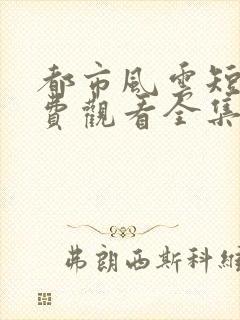 都市風雲短
費觀看全集
弗朗西斯科維